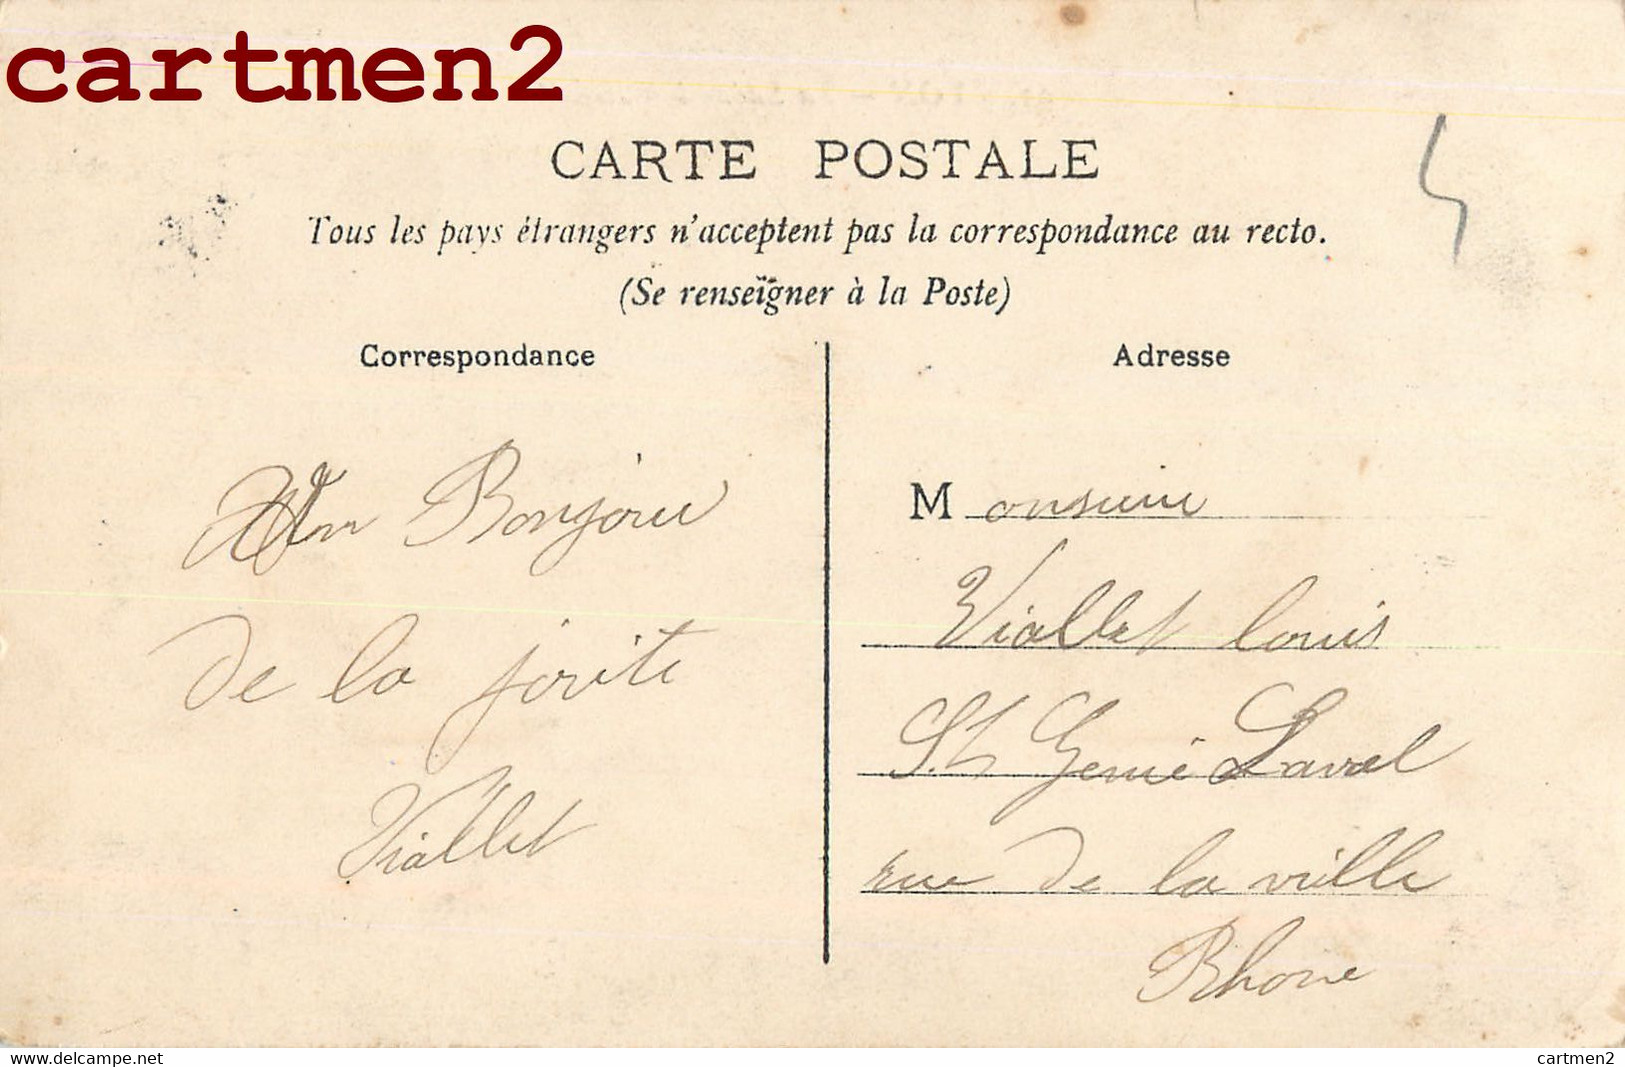 cartmen2
CARTE POSTALE
Tous les pays étrangers n'acceptent pas la correspondance au recto.
(Se renseigner à la Poste)
Correspondance
Un Bonjour
de la
Viallet
Adresse
Monsieur
Viallet louis
St Genie Laval
rue de la ville
Rhone
www.delcampe.net
cartmen2